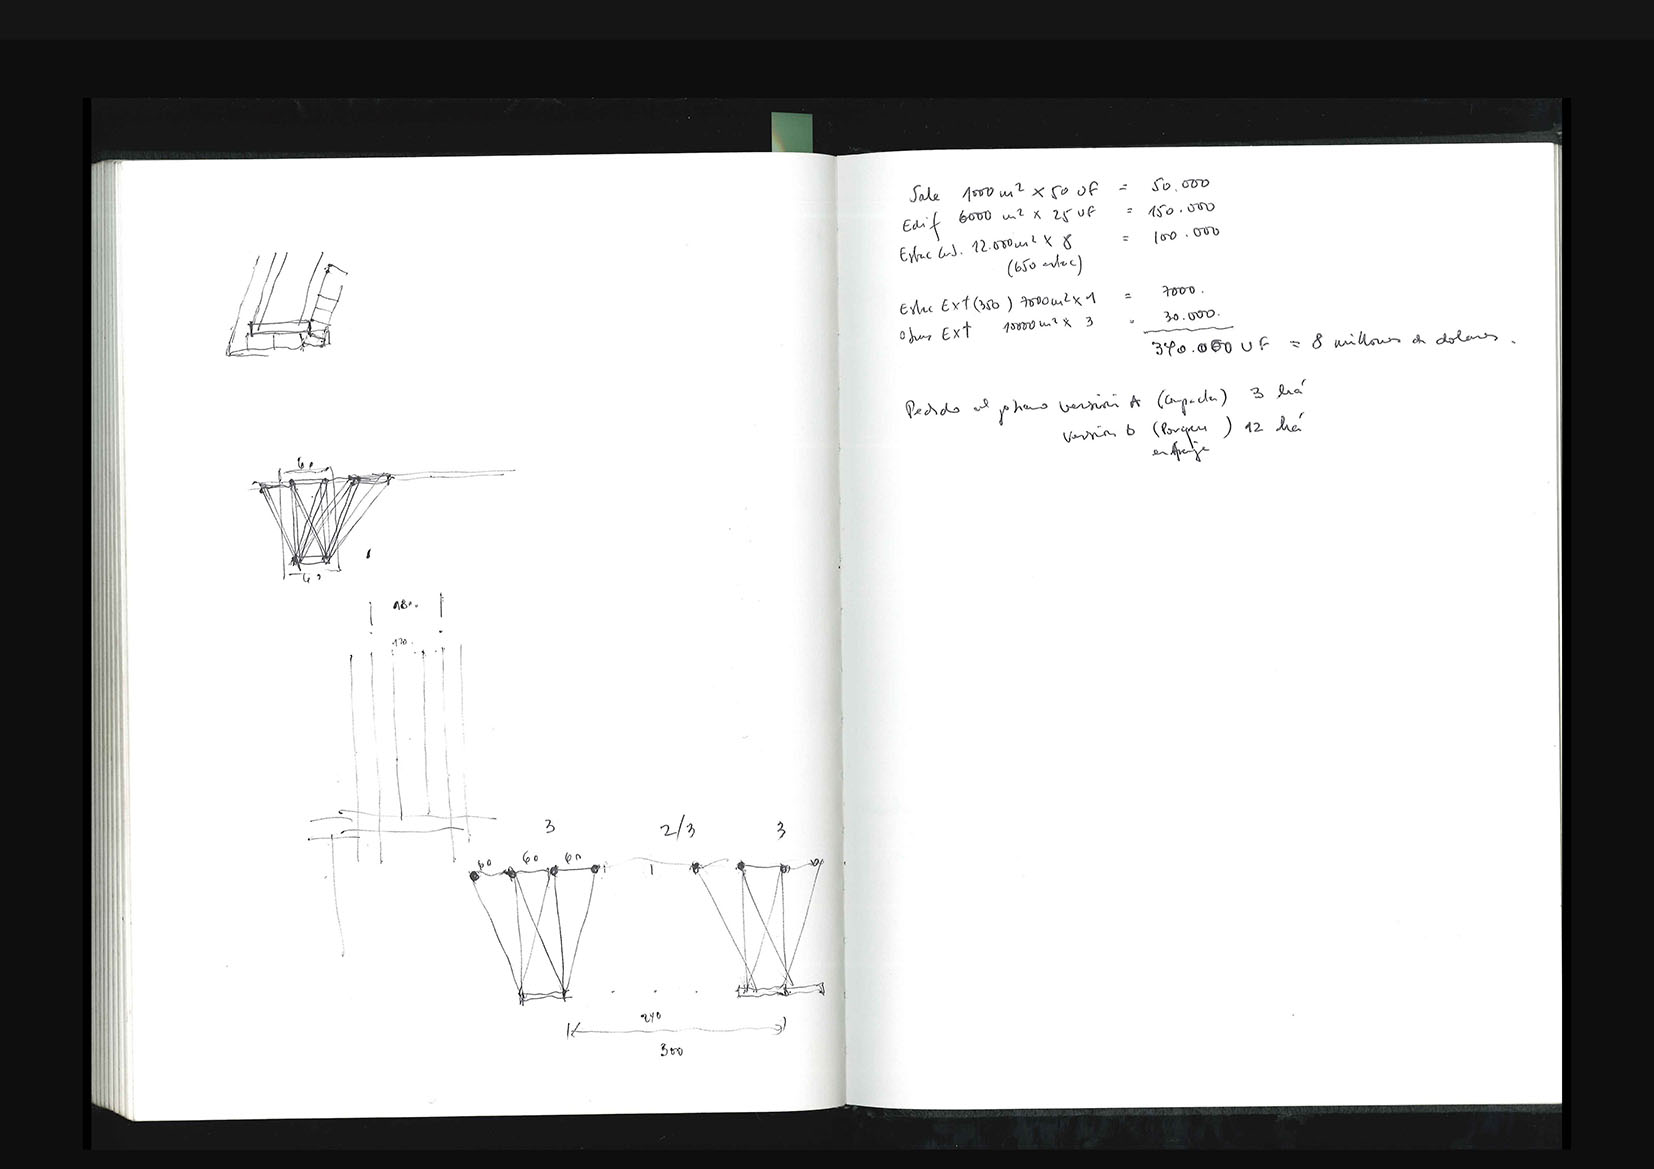 60
60
180.
120.
3 2/3 3
60 60 60
240
300
Sala 1000 m² x 50 UF = 50.000
Edif 6000 m² x 25 UF = 150.000
Estac 12.000 m² x 8 = 100.000
(650 estac)
Estac Ext (350) 7000 m² x 1 = 7000.
Obras Ext 10000 m² x 3 = 30.000.
340.000 UF = 8 millones de dolares.
Pedido al versión A (Compacta) 3 há
versión b (Parque) 12 há